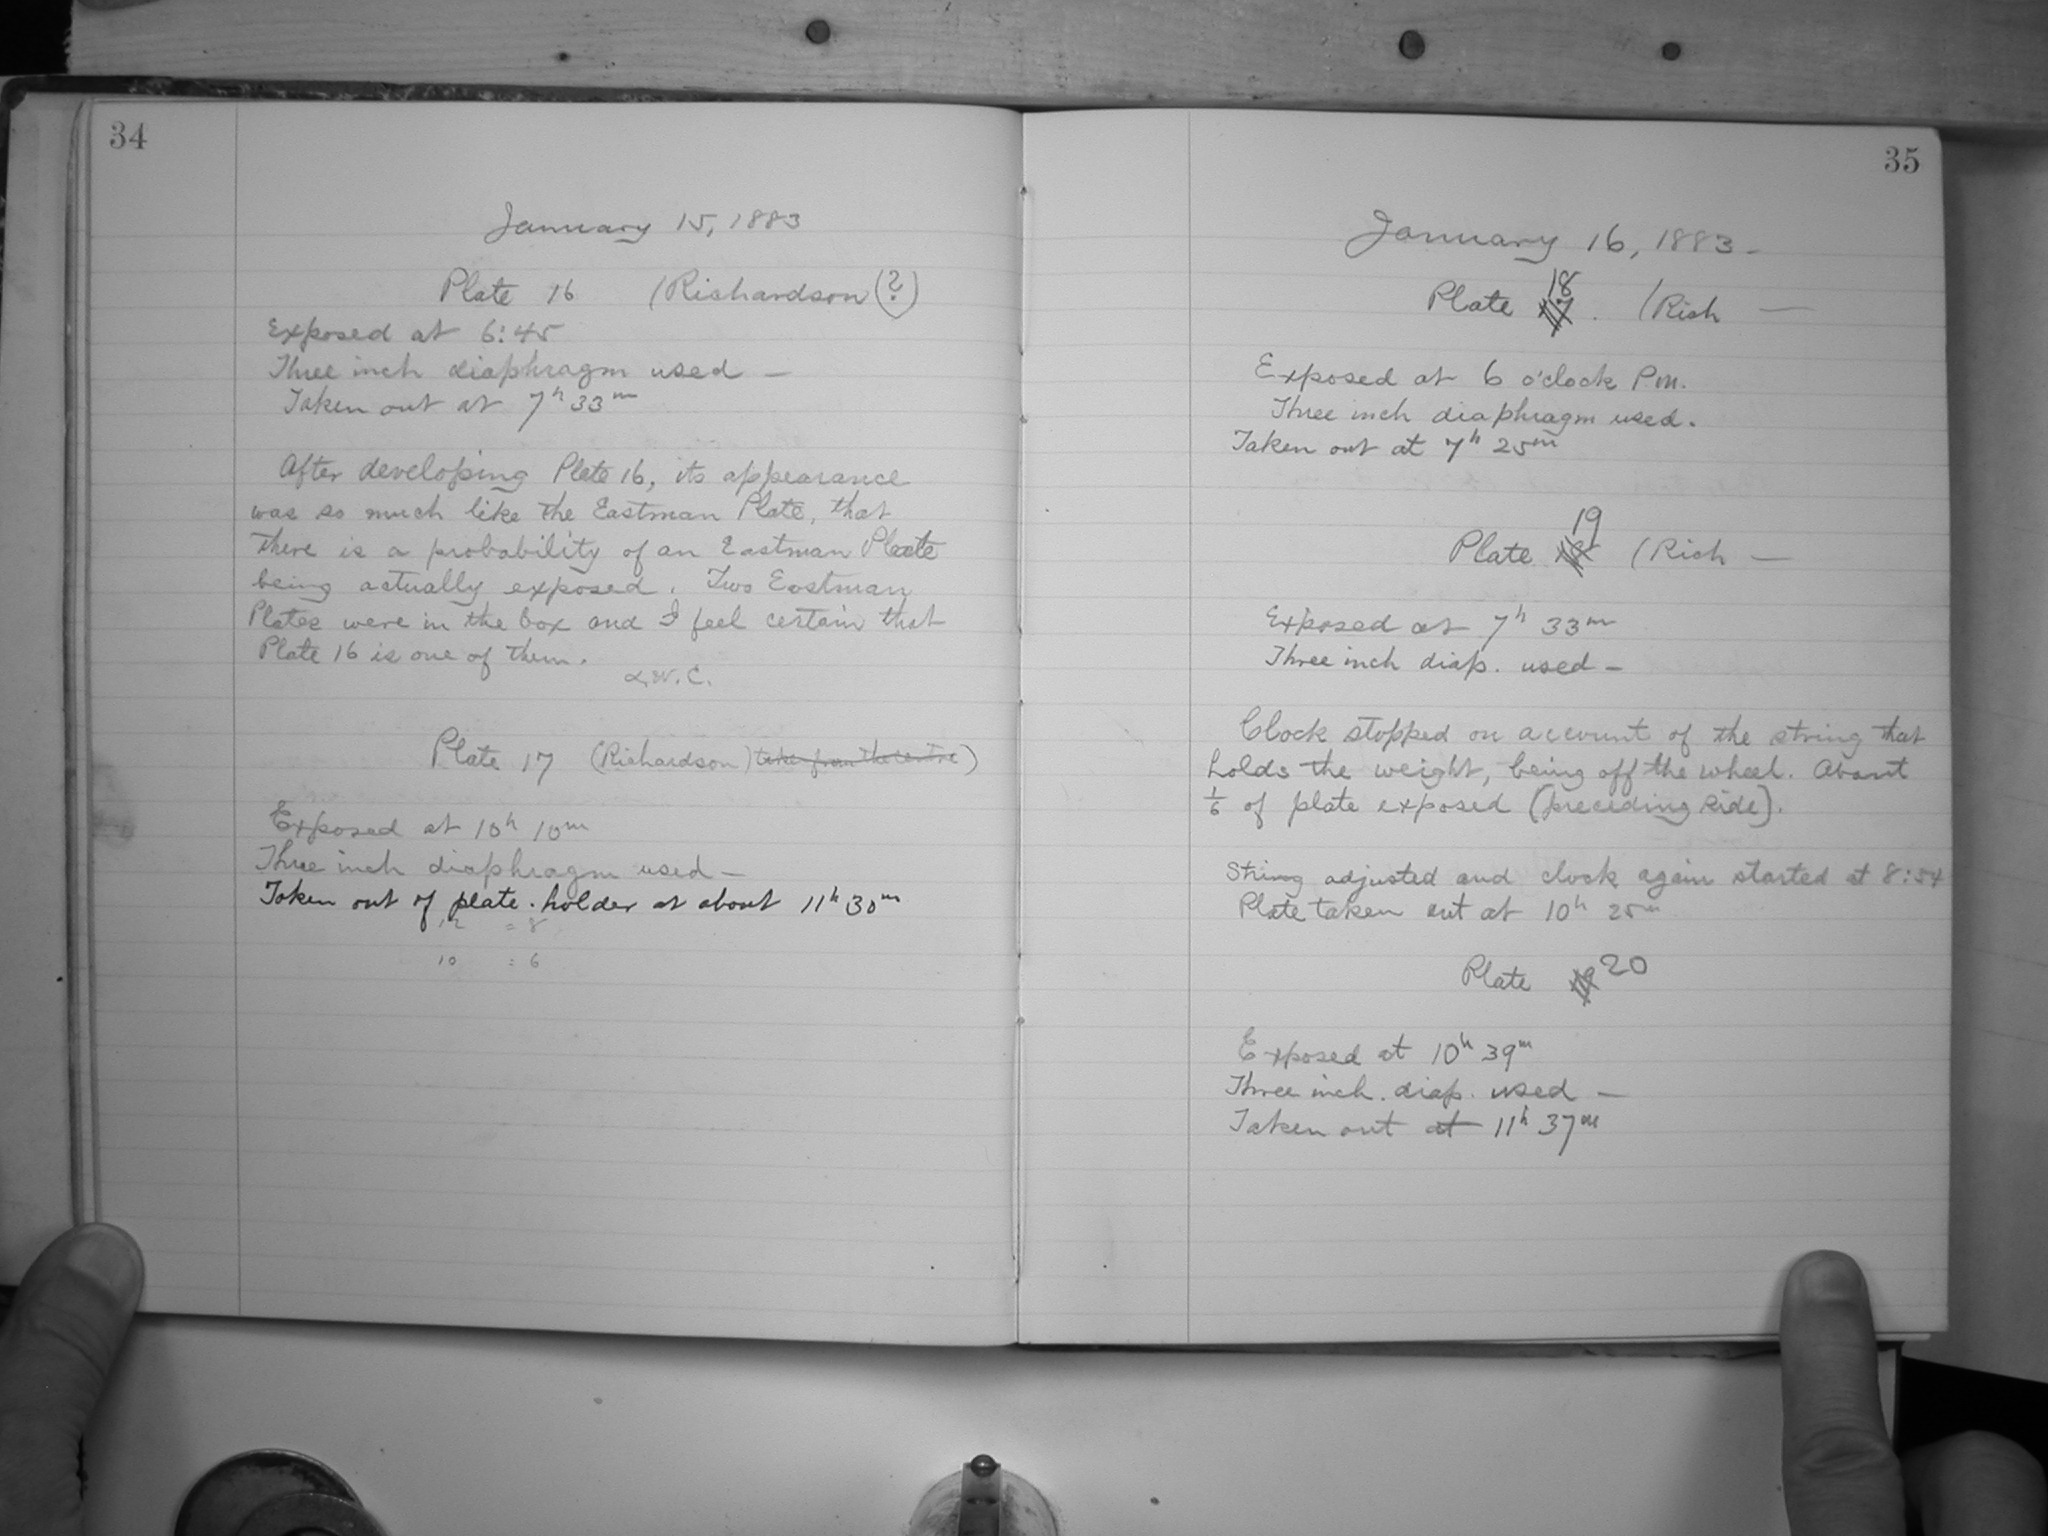 34
January 15, 1883
Plate 16 (Richardson (?)
Exposed at 6:45
Three inch diaphragm used —
Taken out at 7h 33m
After developing Plate 16, its appearance
was so much like the Eastman Plate, that
there is a probability of an Eastman Plate
being actually exposed. Two Eastman
Plates were in the box and I feel certain that
Plate 16 is one of them.
W. C.
Plate 17 (Richardson) taken from the centre)
Exposed at 10h 10m
Three inch diaphragm used —
Taken out of plate-holder at about 11h 30m
12 = 8
10 = 6
35
January 16, 1883 —
18
Plate 17. (Rich —
Exposed at 6 o'clock P.M.
Three inch diaphragm used.
Taken out at 7h 25m
19
Plate 18 (Rich —
Exposed at 7h 33m
Three inch diap. used —
Clock stopped on account of the string that
holds the weight, being off the wheel. About
1/6 of plate exposed (preceding side).
String adjusted and clock again started at 8:54
Plate taken out at 10h 25m
Plate 19 20
Exposed at 10h 39m
Three inch. diap. used —
Taken out at 11h 37m